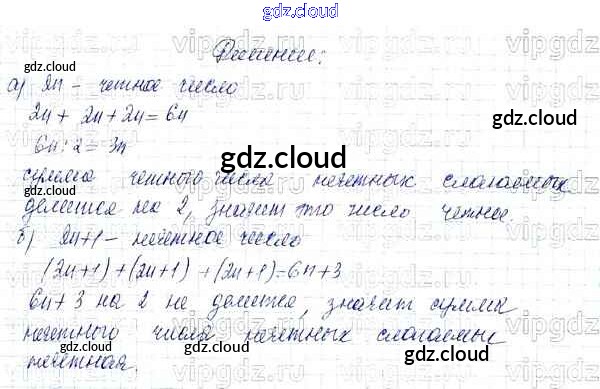 gdz.cloud
Решение:
gdz.cloud
а) 2n - четное число
2n + 2n + 2n = 6n
6n : 2 = 3n
gdz.cloud
gdz.cloud
сумма четного числа нечетных слагаемых
делится на 2, значит это число четное.
б) 2n+1 - нечетное число
(2n+1) + (2n+1) + (2n+1) = 6n+3
6n+3 на 2 не делится, значит сумма
нечетного числа нечетных слагаемых
gdz.cloud
gdz.cloud
нечетная.